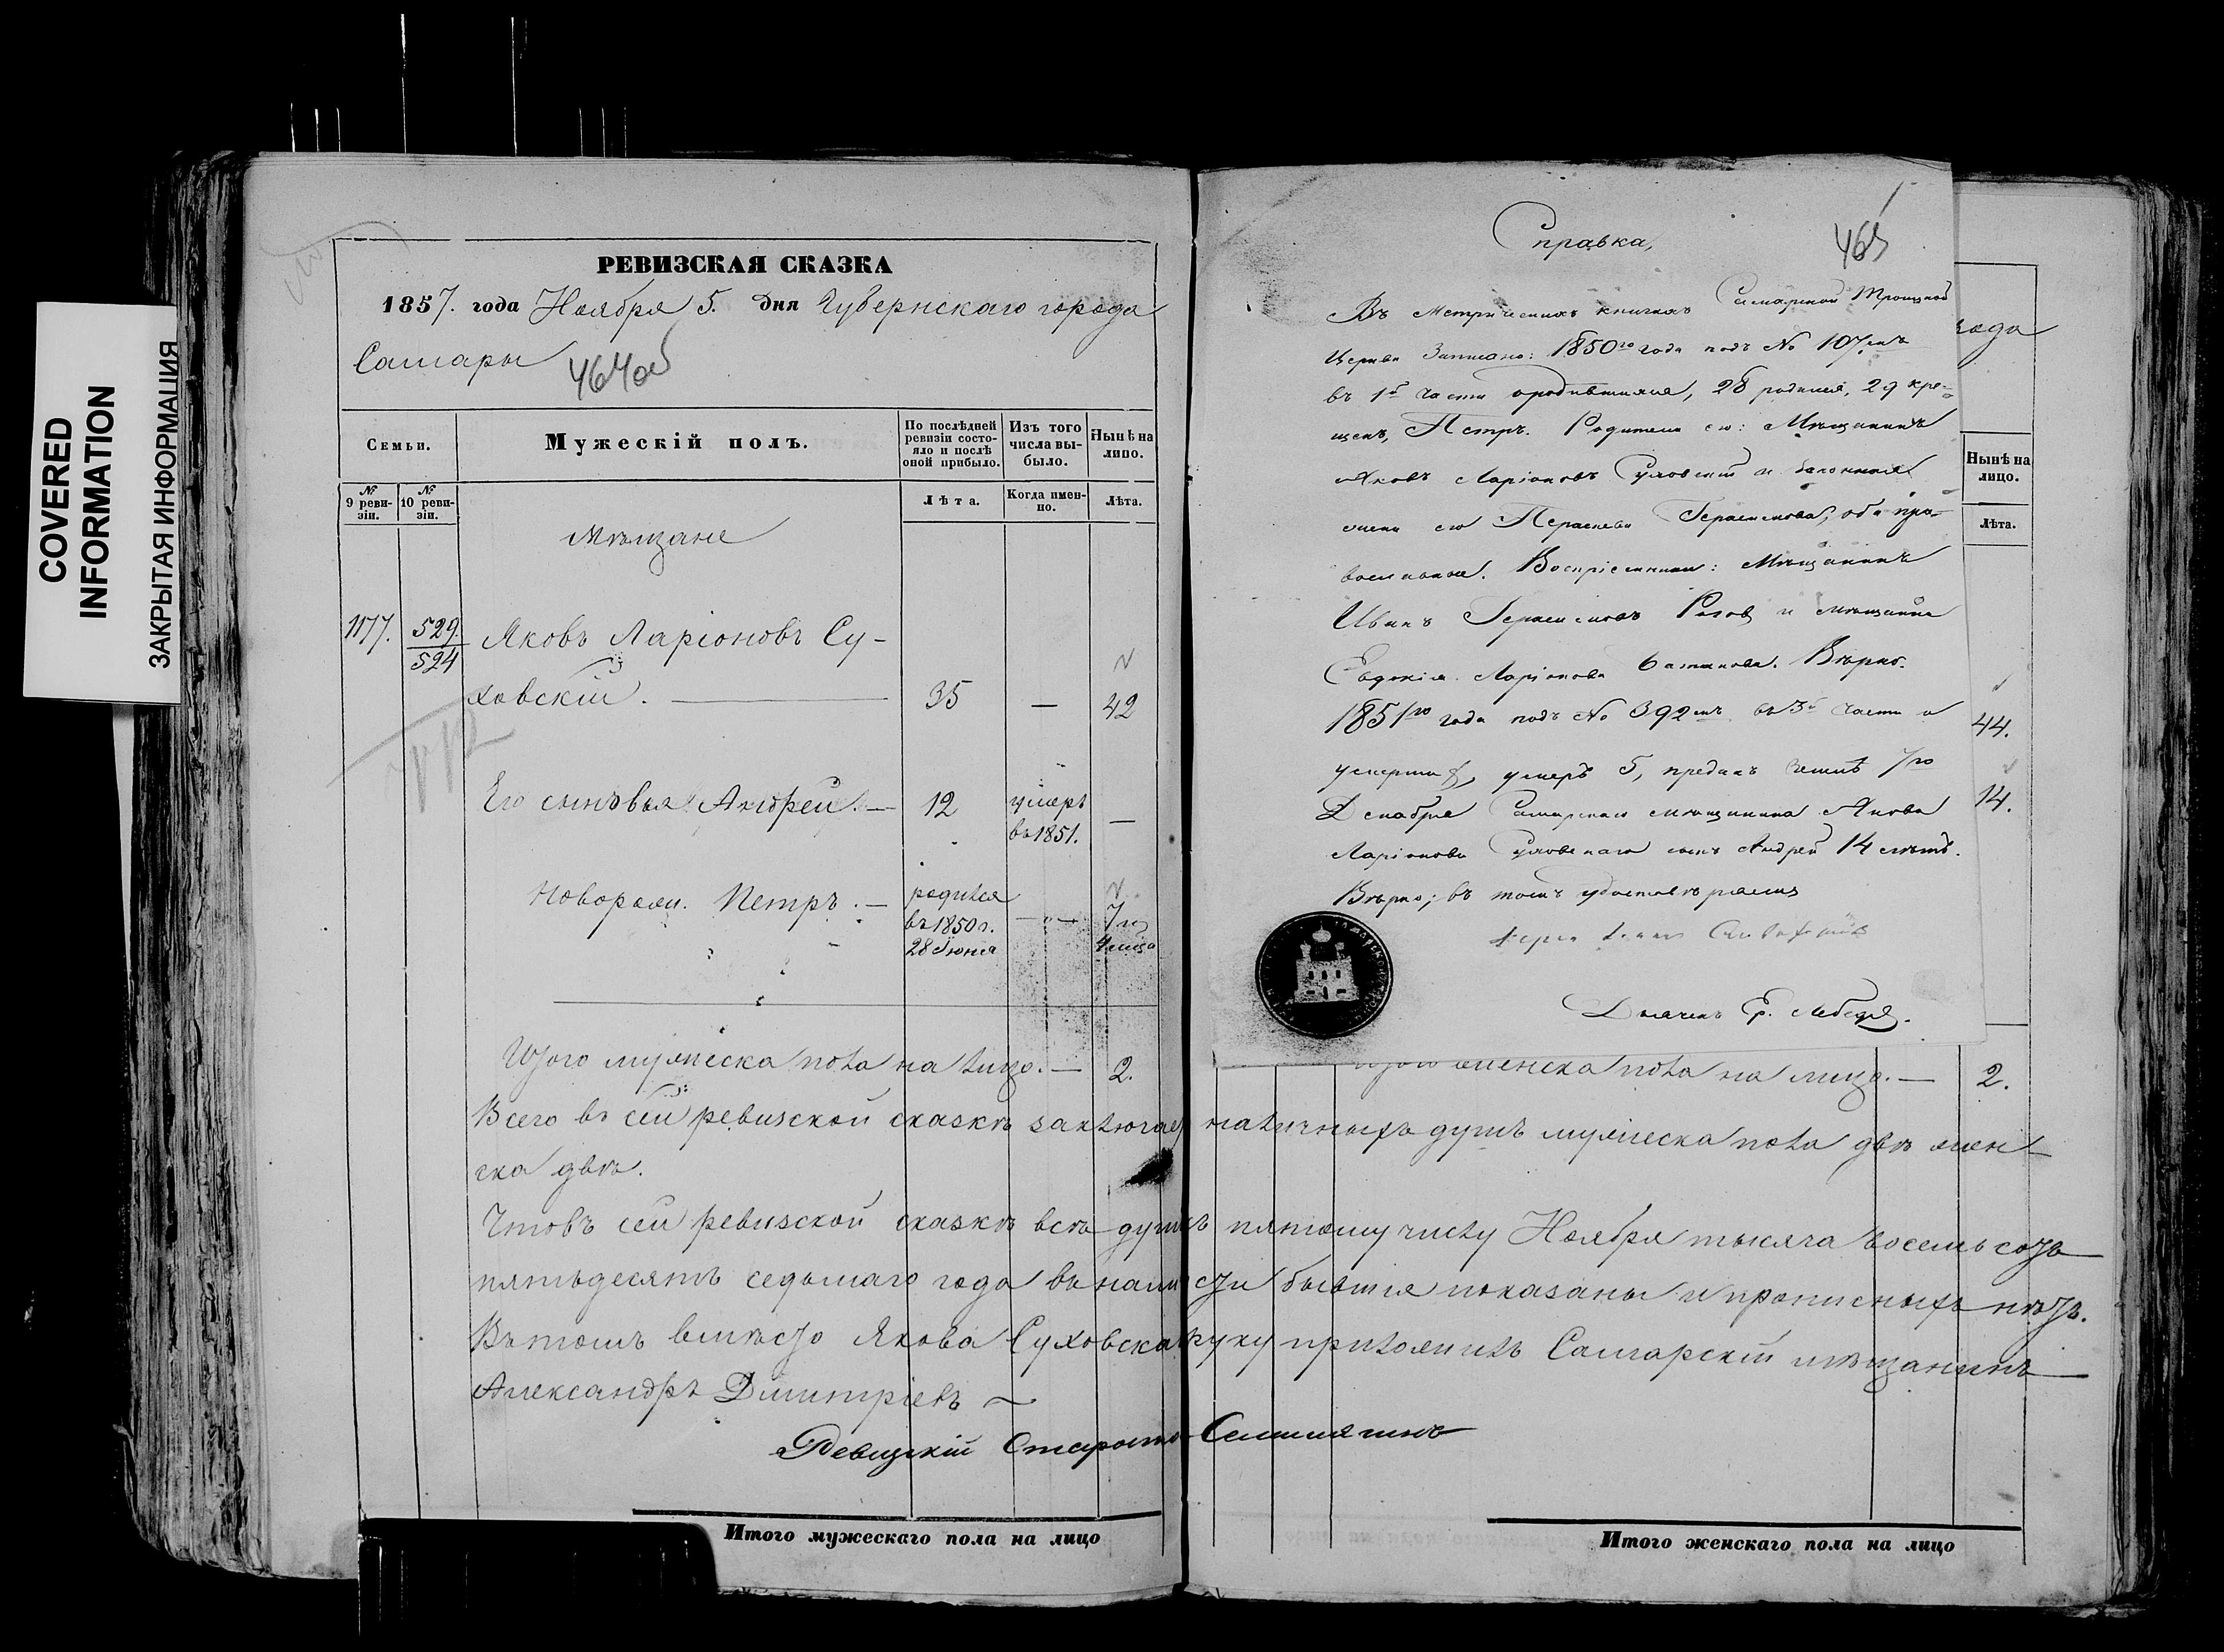 COVERED
INFORMATION
ЗАКРЫТАЯ ИНФОРМАЦИЯ
РЕВИЗСКАЯ СКАЗКА
1857. года Ноября 5. дня Губернскаго города
Самары
464об
Семьи.
Мужескій полъ.
По послѣдней ревизіи состояло и послѣ оной прибыло.
Изъ того числа выбыло.
Нынѣ на лицо.
№ 9 ревизіи.
№ 10 ревизіи.
Лѣта.
Когда именно.
Лѣта.
Мѣщане
1177. 529. Яковъ Ларіоновъ Су-
524
ховскій. — 35 — 42
Его сыновья Андрей. — 12 умеръ —
въ 1851.
Новорожд. Петръ. — родился
въ 1850 г. — „ — 7 и
28 Іюня 4 мѣсца
Итого мужеска пола на лицо. — 2.
Всего въ сей ревизской сказкѣ заключает
ска двѣ.
Чтовъ сей ревизской сказкѣ всѣ души
пятьдесятъ седьмаго года въ нали
Въ томъ вмѣсто Якова Суховска
Александръ Дмитріевъ ~
Ревизскій Староста
Итого мужескаго пола на лицо
Справка,
465
Въ Метрическихъ книгахъ Самарской Троицкой
Церкви Записано: 1850го года подъ № 107мъ
въ 1й части о родившихся, 28 родился, 29 кре-
щенъ, Петръ. Родители его: Мѣщанинъ
Яковъ Ларіоновъ Суховской и законная
жена его Параскева Герасимова, оба пра-
вославные. Воспріемники: Мѣщанинъ
Иванъ Герасимовъ и мѣщанка
Евдокія Ларіонова Вѣрно.
1851го года подъ № 392мъ въ 3й части о
умершихъ, умеръ 5, преданъ землѣ 7го
Декабря Самарскаго мѣщанина Якова
Ларіонова Суховскаго сынъ Андрей 14 лѣтъ.
Вѣрно; въ томъ удостовѣряемъ
Дьячекъ Ер. Лебедев.
года
Нынѣ на лицо.
Лѣта.
44.
14.
женска пола на лицо. — 2.
наличныхъ душъ мужеска пола двѣ жен
пятому числу Ноября тысяча восемьсотъ
сти бывшія показаны и прописныхъ нѣтъ.
руку приложилъ Самарскій мѣщанинъ
Итого женскаго пола на лицо